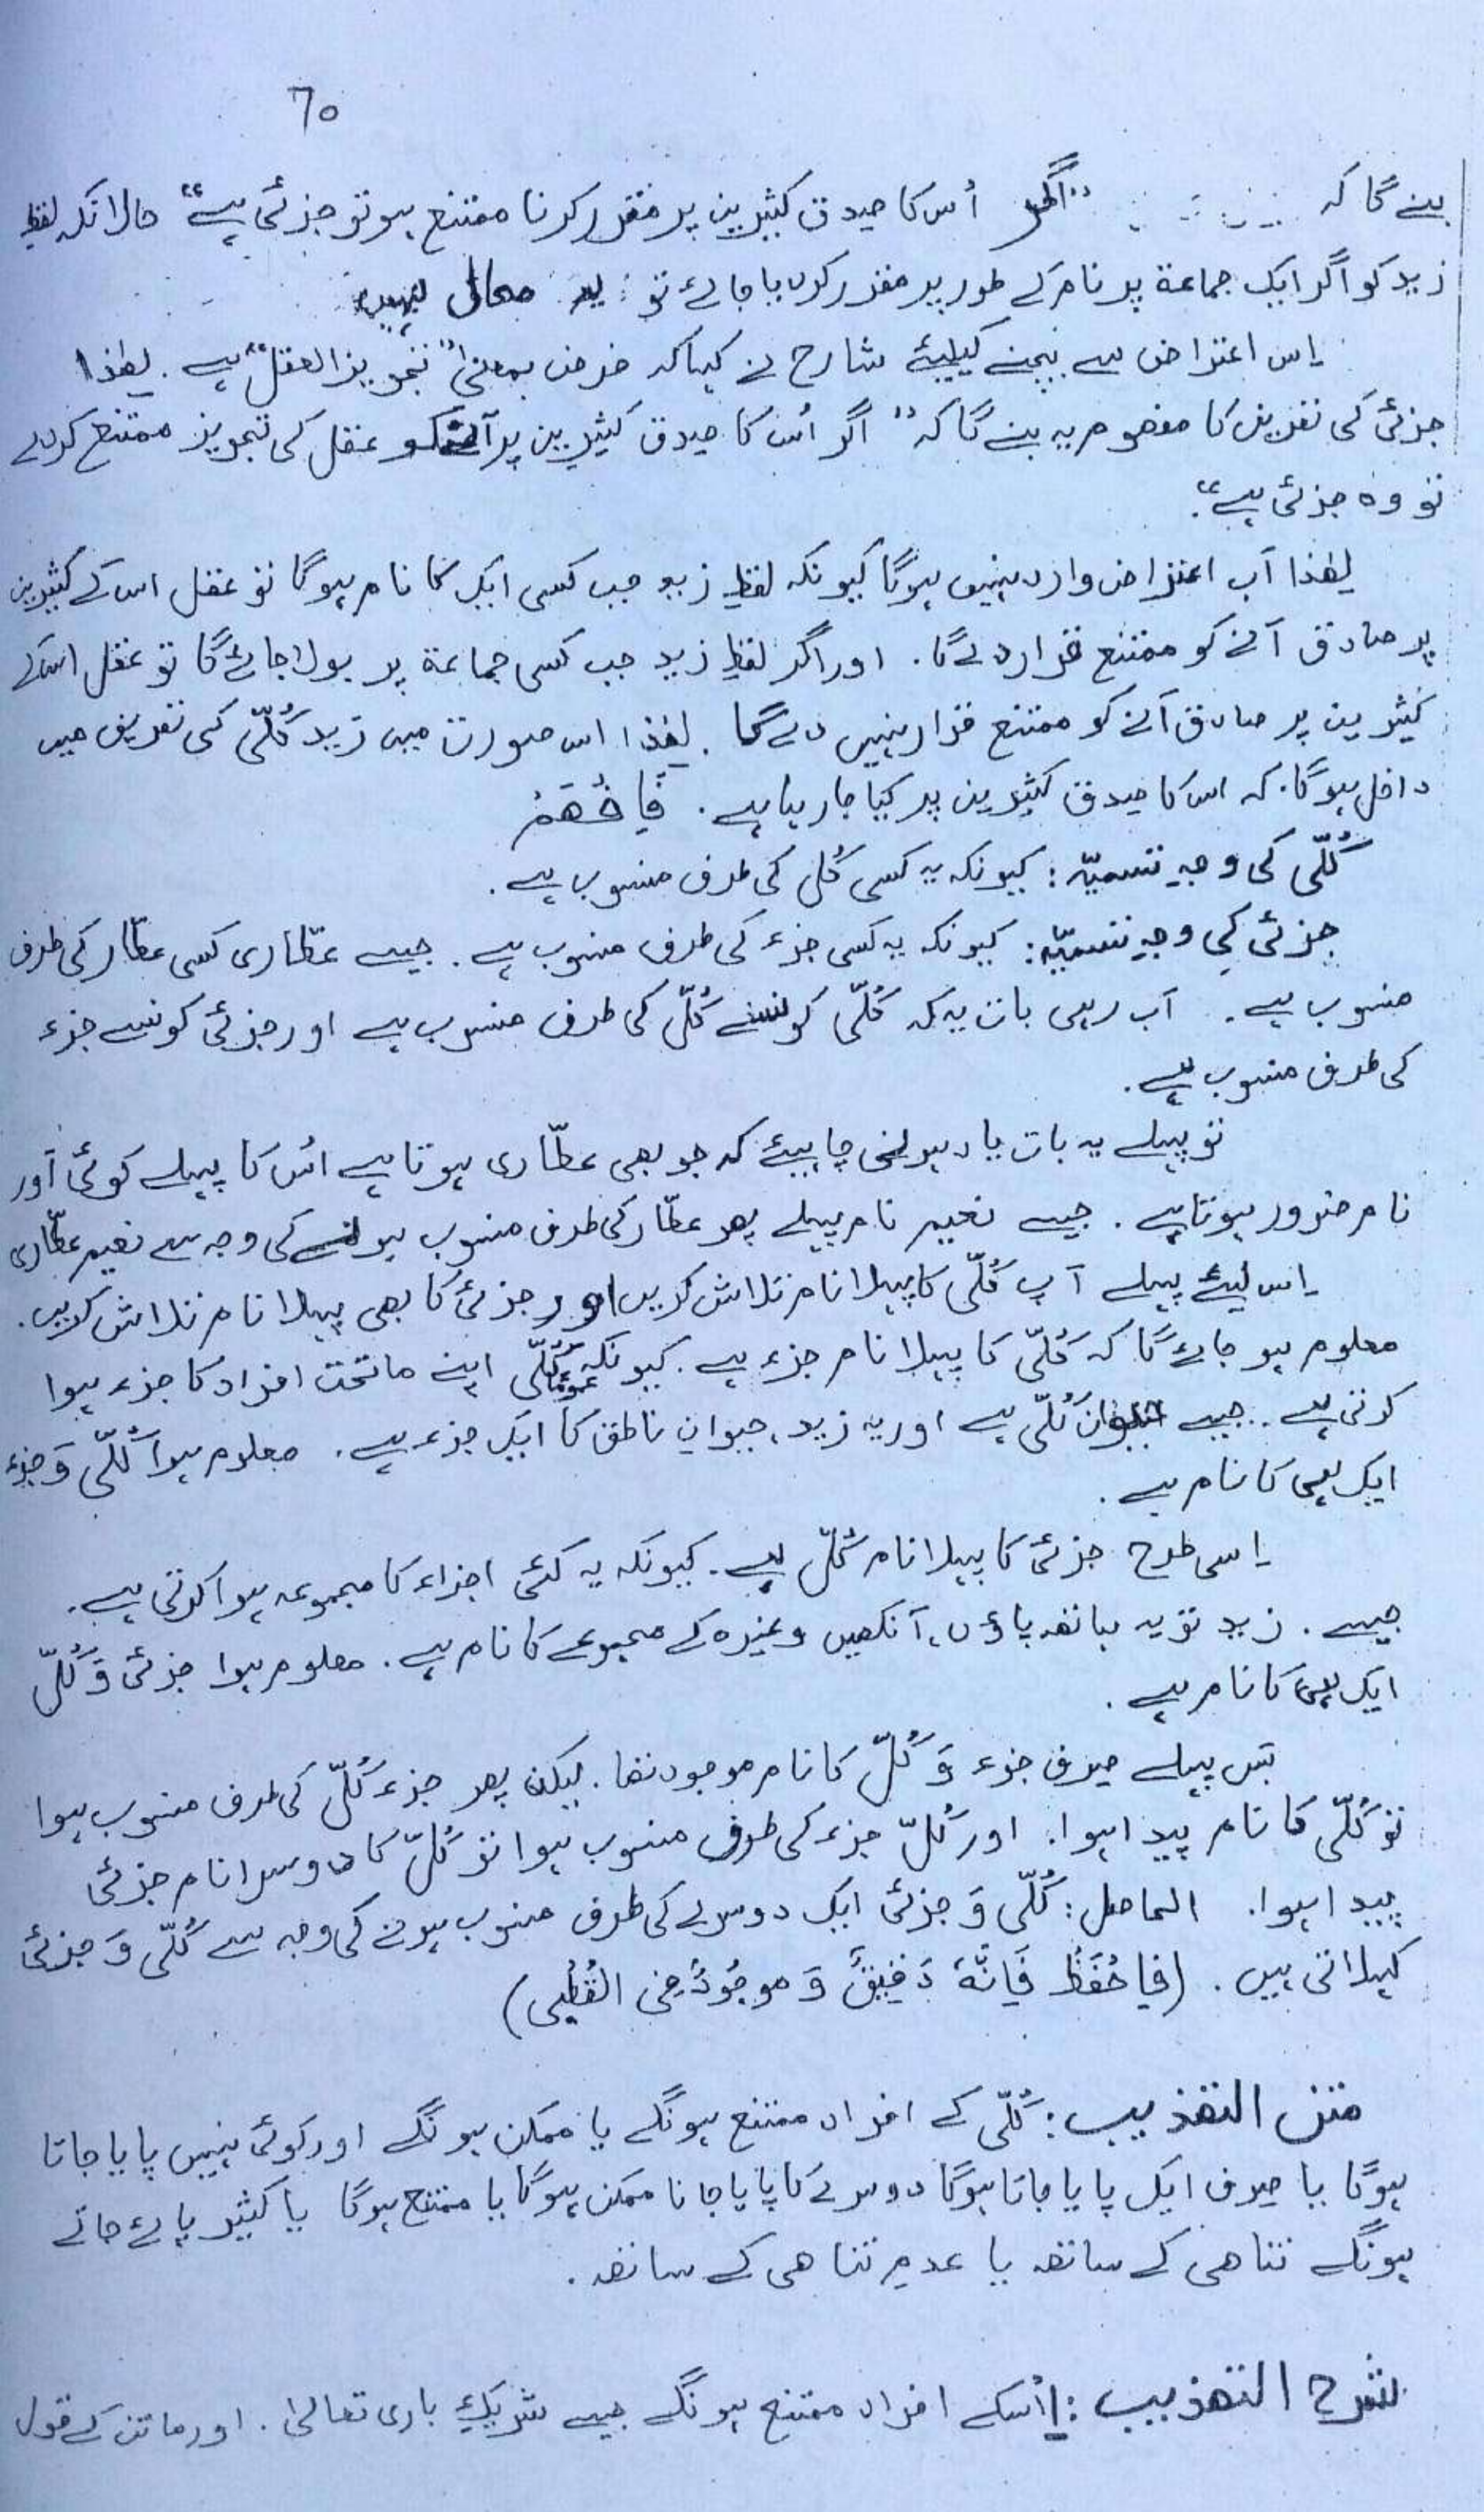 70
بنے گا کہ "اگر اُس کا صِدق کثیرین پر مقرر کرنا ممتنع ہو تو جزئی ہے" حالانکہ لفظِ
زید کو اگر ایک جماعۃ پر نام کے طور پر مقرر کر دیا جائے تو یہ محال نہیں
اِس اعتراض سے بچنے کیلیئے شارح نے کہا کہ فرض بمعنیٰ "تجویز العقل" ہے . لھٰذا
جزئی کی تعریف کا مفھوم یہ بنے گا کہ "اگر اُس کا صِدق کثیرین پر آنے کو عقل کی تجویز ممتنع کردے
تو وہ جزئی ہے".
لھٰذا اَب اعتراض وارد نہیں ہوگا کیونکہ لفظِ زید جب کسی ایک کا نام ہوگا تو عقل اس کے کثیرین
پر صادق آنے کو ممتنع قرار دے گا . اور اگر لفظِ زید جب کسی جماعۃ پر بولا جائے گا تو عقل اسکے
کثیرین پر صادق آنے کو ممتنع قرار نہیں دے گا . لھٰذا اس صورت میں زید کُلّی کی تعریف میں
داخل ہوگا. کہ اس کا صِدق کثیرین پر کیا جا رہا ہے . فَافْھَمْ
کُلّی کی وجہِ تسمیّہ : کیونکہ یہ کسی کُل کی طرف منسوب ہے .
جزئی کی وجہِ تسمیّہ : کیونکہ یہ کسی جزء کی طرف منسوب ہے . جیسے عطّاری کسی عطّار کی طرف
منسوب ہے . اَب رہی بات یہ کہ کُلّی کونسے کُلّ کی طرف منسوب ہے اور جزئی کونسے جزء
کی طرف منسوب ہے .
تو پہلے یہ بات یاد ہونی چاہیئے کہ جو بھی عطّاری ہوتا ہے اُس کا پہلے کوئی اَور
نام ضرور ہوتا ہے . جیسے نعیم نام پہلے پھر عطّار کی طرف منسوب ہونے کی وجہ سے نعیم عطّاری
اِس لیئے پہلے آپ کُلّی کا پہلا نام تلاش کریں اور جزئی کا بھی پہلا نام تلاش کریں .
معلوم ہو جائے گا کہ کُلّی کا پہلا نام جزء ہے . کیونکہ عموماً کُلّی اپنے ماتحت افراد کا جزء ہوا
کرتی ہے . جیسے حیوان کُلّی ہے اور یہ زید ، حیوانِ ناطق کا ایک جزء ہے . معلوم ہوا کُلّی وَ جزء
ایک ہی کا نام ہے .
اِسی طرح جزئی کا پہلا نام کُلّ ہے . کیونکہ یہ کئی اجزاء کا مجموعہ ہوا کرتی ہے .
جیسے . زید تو یہ ہاتھ پاؤں ، آنکھیں وغیرہ کے مجموعے کا نام ہے . معلوم ہوا جزئی وَ کُلّ
ایک ہی کا نام ہے .
بَس پہلے صِرف جزء وَ کُلّ کا نام موجود تھا . لیکن پھر جزء کُلّ کی طرف منسوب ہوا
تو کُلّی کا نام پیدا ہوا . اور کُلّ جزء کی طرف منسوب ہوا تو کُلّ کا دوسرا نام جزئی
پیدا ہوا . الحاصل : کُلّی وَ جزئی ایک دوسرے کی طرف منسوب ہونے کی وجہ سے کُلّی وَ جزئی
کہلاتی ہیں . (فَاحْفَظْ فَاِنَّہٗ دَقِیْقٌ وَ موجُوْدٌ فِی القُطْبِی)
متن التھذیب : کُلّی کے افراد ممتنع ہونگے یا ممکن ہونگے اور کوئی نہیں پایا جاتا
ہوگا یا صِرف ایک پایا جاتا ہوگا دوسرے کا پایا جانا ممکن ہوگا یا ممتنع ہوگا یا کثیر پائے جاتے
ہونگے تناھی کے ساتھ یا عدمِ تناھی کے ساتھ .
شرح التھذیب : اُسکے افراد ممتنع ہونگے جیسے شریکِ باری تعالیٰ . اور ماتن کے قول